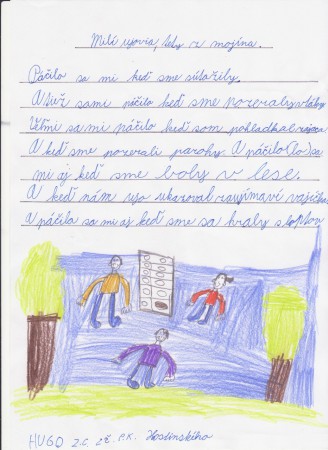 Milí ujovia, tety z mojína.
Páčilo sa mi keď sme súťažily.
A tiež sami páčilo keď sme pozeraly vtáky
Veľmi sa mi páčilo keď som pohladkal zajaca
A keď sme pozerali parohy. A páčilo(lo) sa
mi aj keď sme boly v lese.
A keď nám ujo ukazoval zaujímavé vajíčka
A páčila sa mi aj keď sme sa hraly s loptov
HUGO 2.C zš. P.K. Hostinského